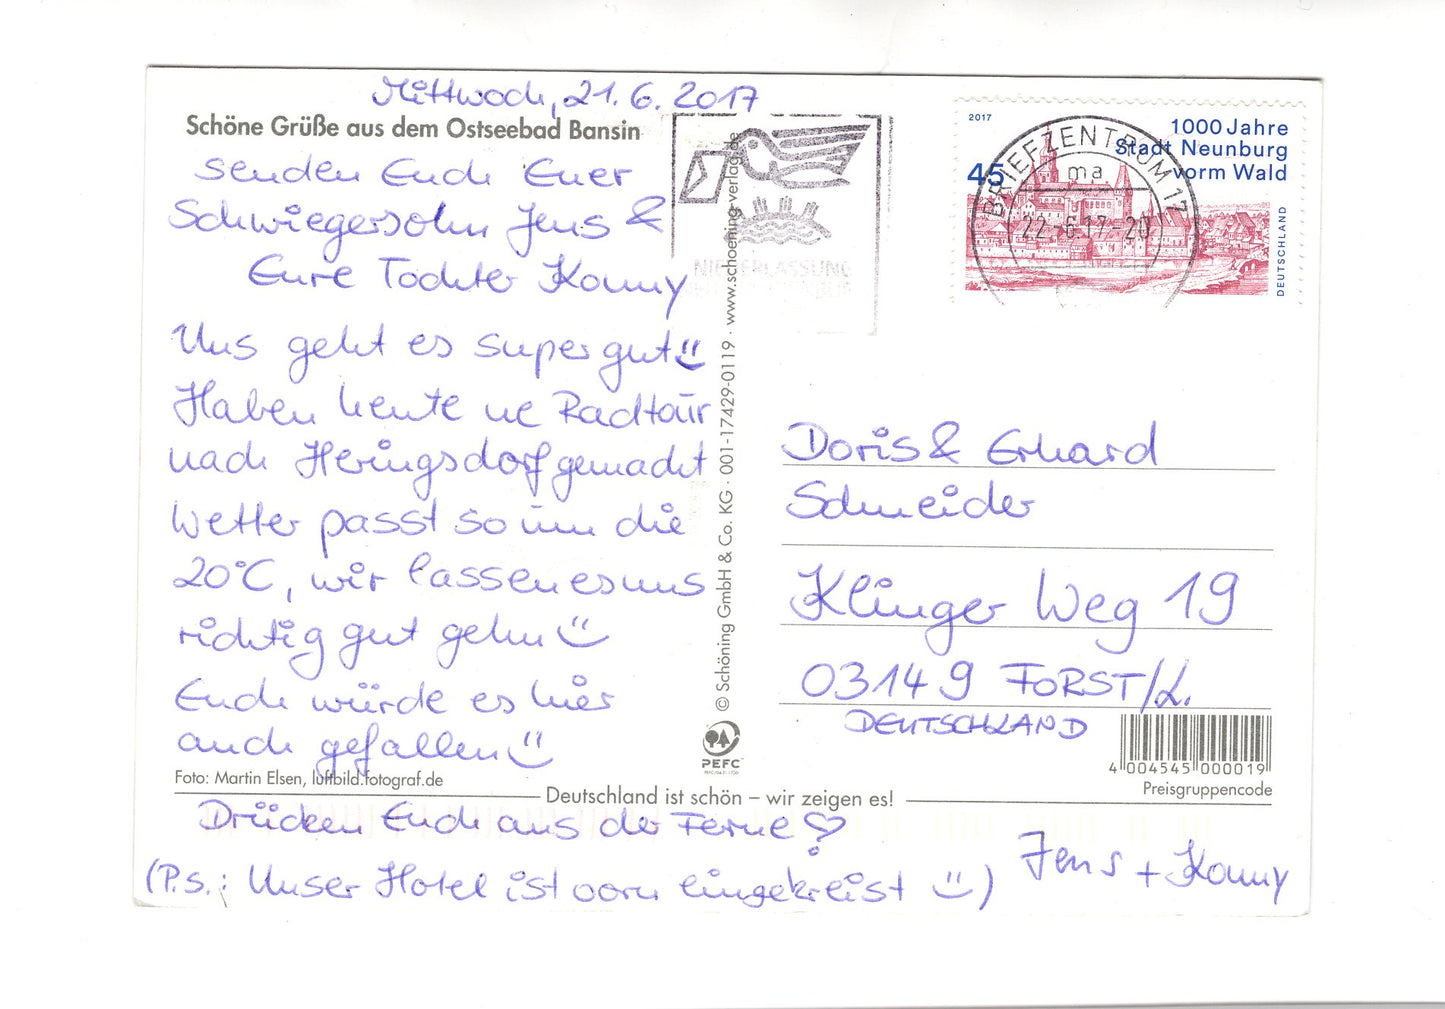 Mittwoch, 21. 6. 2017
Schöne Grüße aus dem Ostseebad Bansin
senden Euch Euer
Schwiegersohn Jens &
Eure Tochter Konny
Uns geht es super gut
Haben heute ne Radtour
nach Heringsdorf gemacht
Wetter passt so um die
20°C, wir lassen es uns
richtig gut gehn
Euch würde es hier
auch gefallen
Foto: Martin Elsen, luftbild.fotograf.de
Deutschland ist schön – wir zeigen es!
Drücken Euch aus der Ferne ♡
(P.s.: Unser Hotel ist vorn eingekreist )
Jens + Konny
© Schöning GmbH & Co. KG · 001-17429-0119 · www.schoening-verlag.de
PEFC
NIEDERLASSUNG
2017
1000 Jahre
Stadt Neunburg
vorm Wald
45
DEUTSCHLAND
BRIEFZENTRUM 17
ma
22.-6.17-20
Doris & Erhard
Schneider
Klinger Weg 19
03149 FORST/L.
DEUTSCHLAND
4 004545 000019
Preisgruppencode